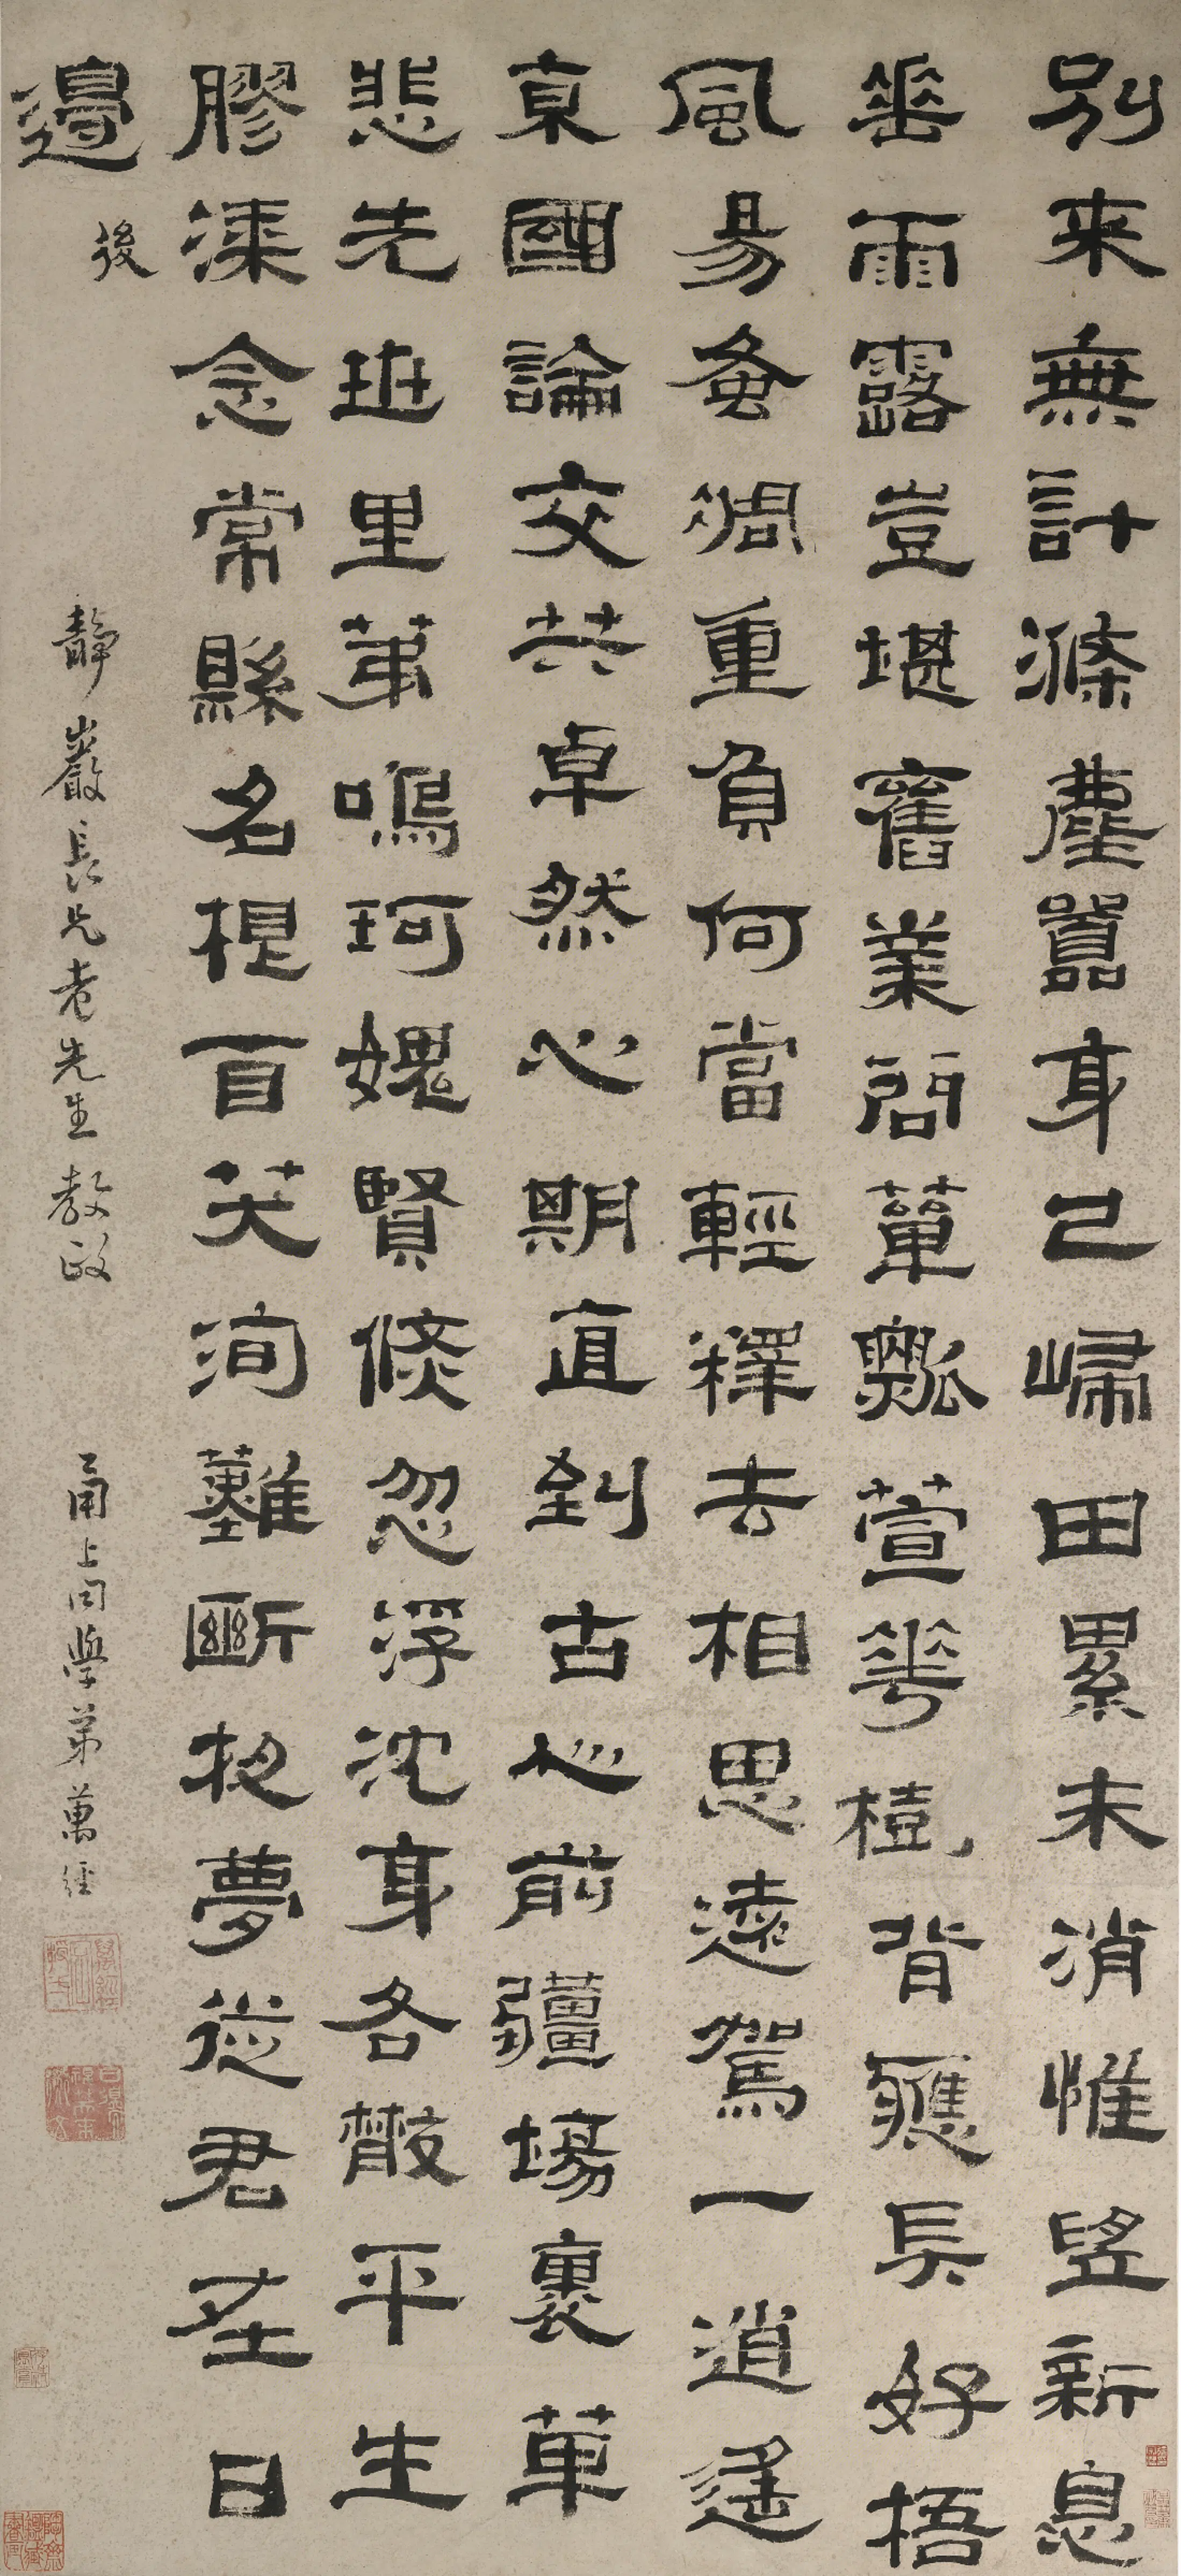 別来無計滌塵囂身已歸田累未消惟望新息
垂雨露豈堪舊業問簞瓢萱華樹背應長好梧
風易蚤凋重負何當輕釋去相思遠駕一逍遙
京國論交共卓然心期直到古心前疆場裏革
悲先班里第鳴珂媿賢倏忽浮沈身各散平生
膠漆念常縣名根百笑洵難斷夜夢從君在日
邊後
靜巖長兄老先生教政
甬上同學弟萬經